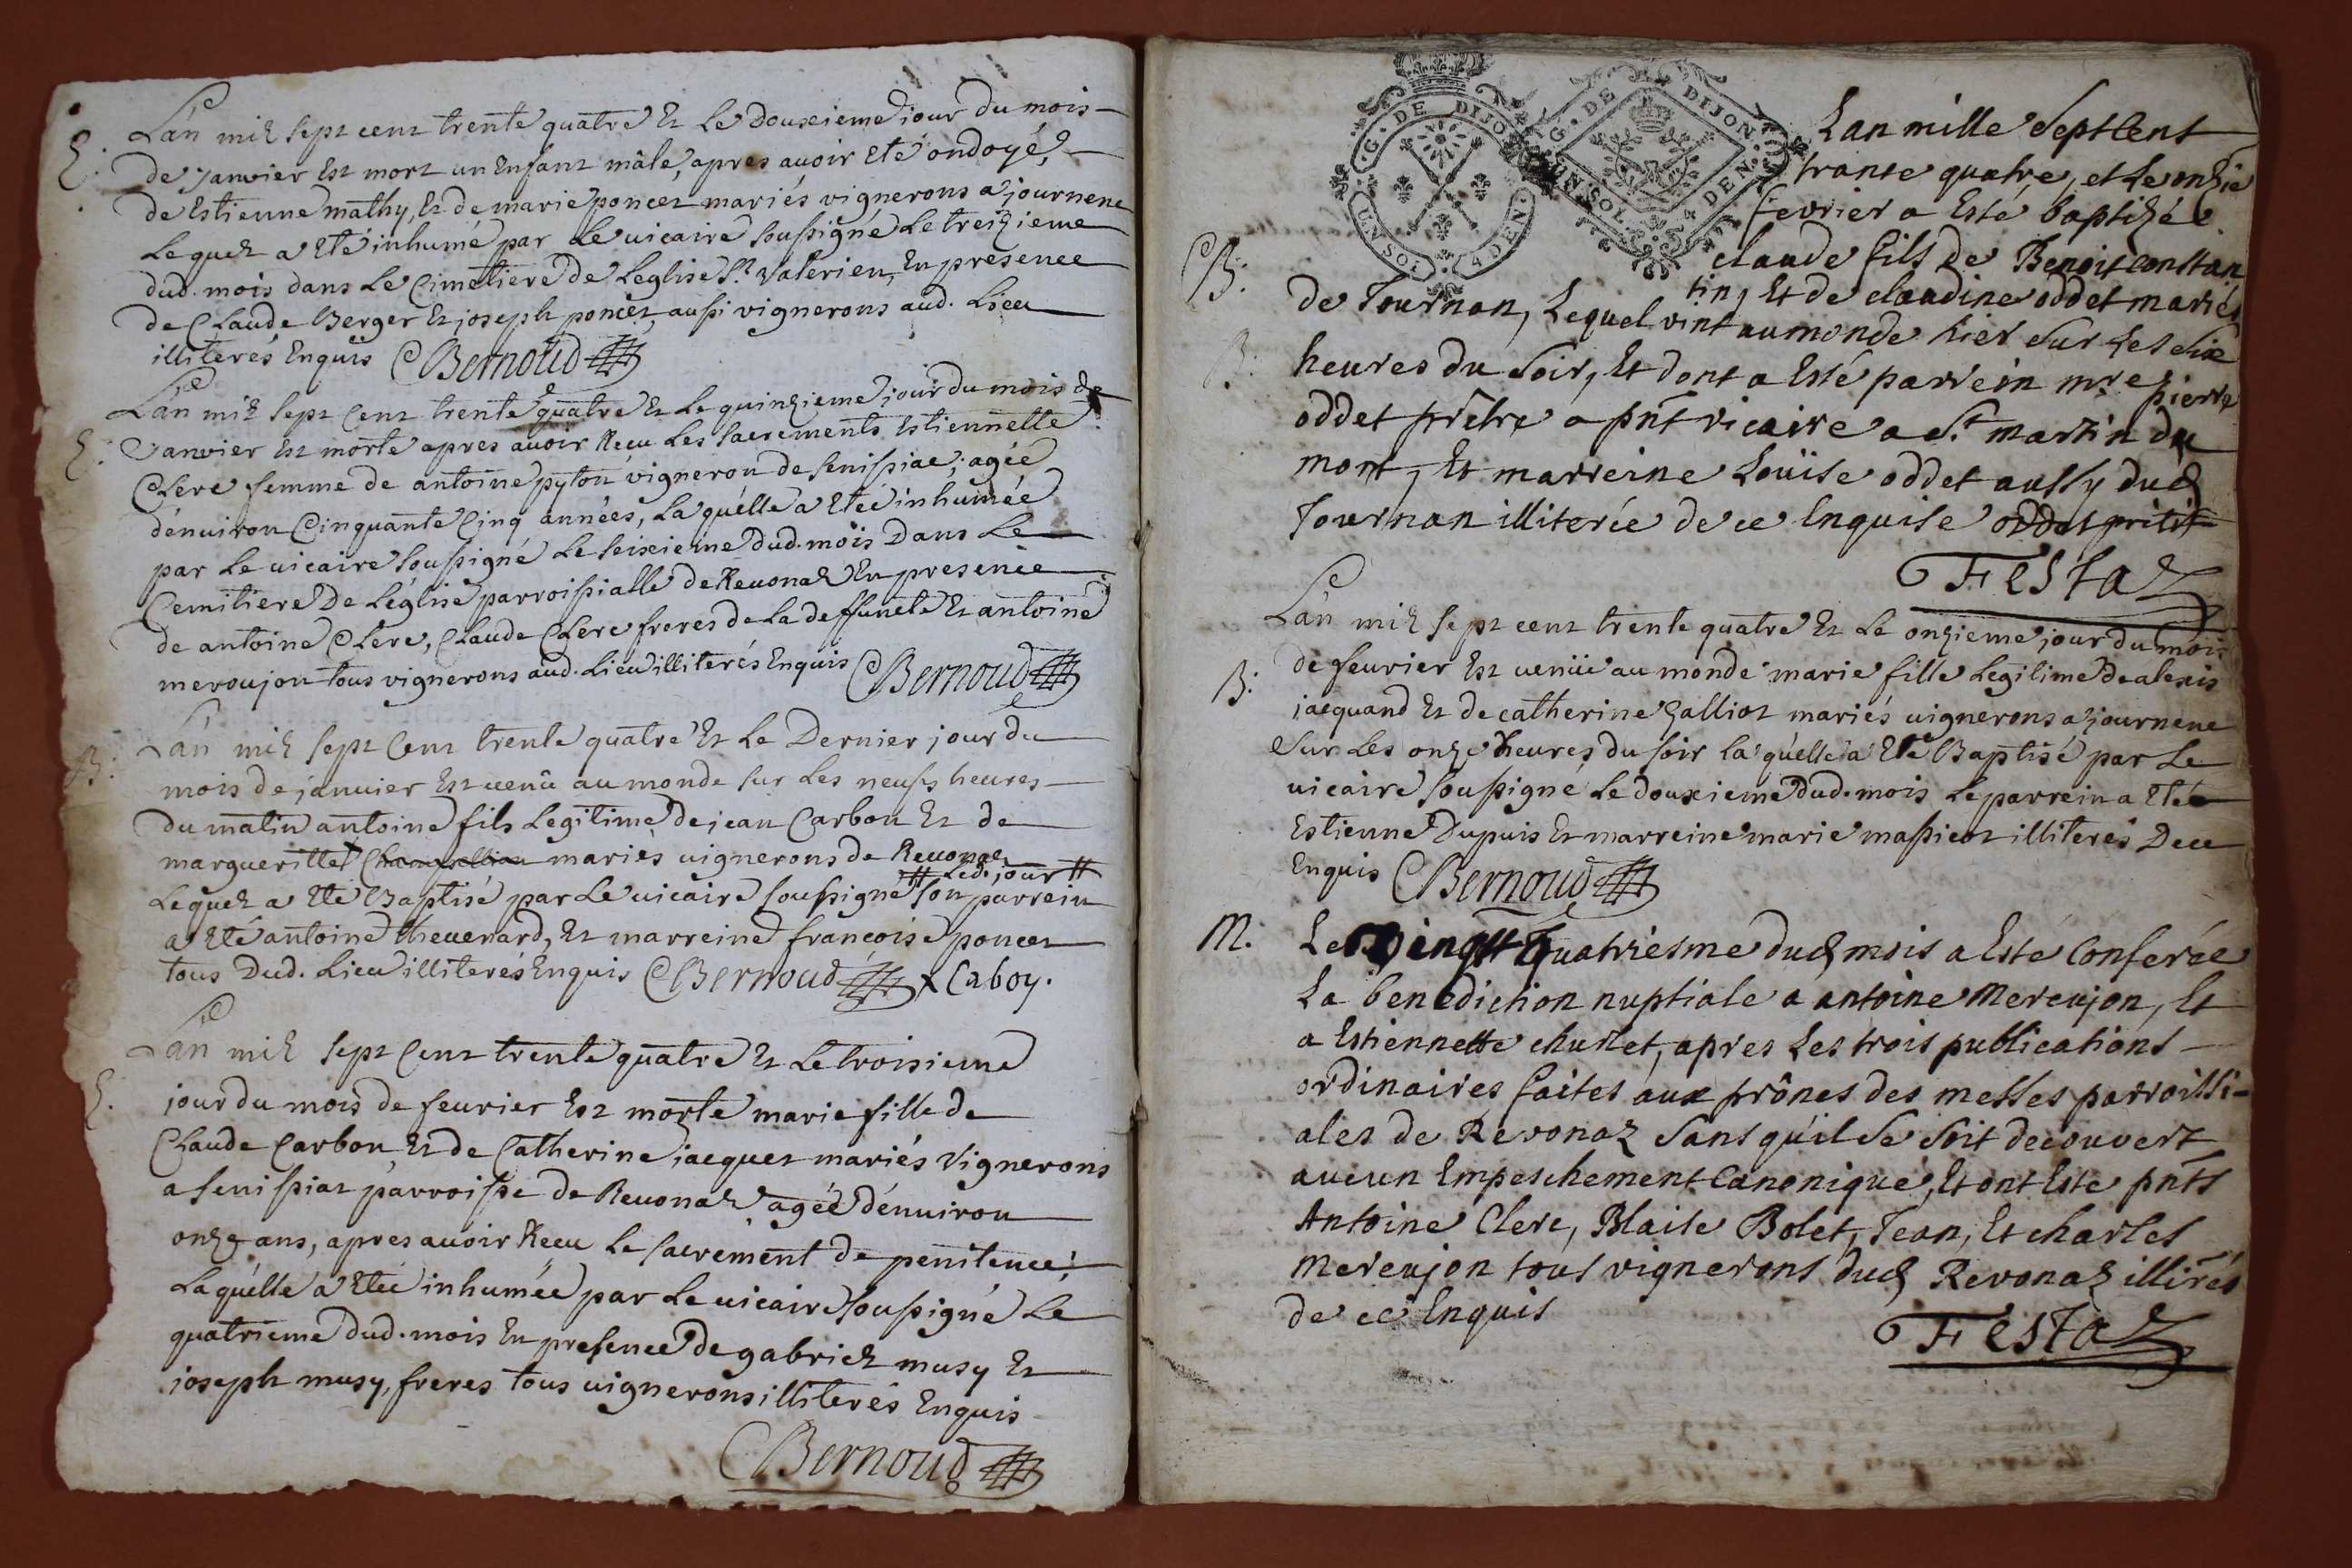 E.
L'an mil sept cent trente quatre Et Le douxieme jour du mois
de janvier Est mort un Enfant mâle, apres avoir Eté ondoyé,
de Estienne mathy, Et de marie poncet mariés vignerons a journene
Lequel a Eté inhumé par Le vicaire soussigné Le treizieme
dud. mois dans Le Cimetiere de Leglise St. Valerien, En presence
de Claude Berger Et joseph poncet, aussi vignerons aud. Lieu
illiterés Enquis Bernoud
E.
L'an mil sept Cent trente quatre Et Le quinzieme jour du mois de
Janvier Est morte apres avoir Reçu Les sacrements Estiennette
Clerc femme de antoine pyton vigneron de senissiac; agée
d'environ Cinquante Cinq années, La quélle a Etée inhumée
par Le vicaire soussigné Le seixieme dud. mois Dans Le
Cemitiere De Léglise parroissialle de Revonaz En presence
de antoine Clerc, Claude Clerc freres de La deffuncte Et antoine
meroujon tous vignerons aud. Lieu illiterés Enquis Bernoud
B:
L'an mil sept Cent trente quatre Et Le Dernier jour du
mois de janvier Est venû au monde sur Les neufs heures
du matin antoine fils Legitime de jean Carbon Et de
margueritte mariés vignerons de Revonaz
# Led. jour #
Lequel a Eté Baptisé par Le vicaire soussigné son parrein
a Eté antoine thevenard, Et marreine francoise poncet
tous Dud. Lieu illiterés Enquis Bernoud x Caboy.
E.
L'an mil sept Cent trente quatre Et Le troisieme
jour du mois de fevrier Est morte marie fille de
Claude Carbon Et de Catherine jacquet mariés Vignerons
a senissiat parroisse de Revonaz agée d'environ
onze ans, apres avoir Recu Le sacrement de penitence;
La quélle a Etée inhumée par Le vicaire soussigné Le
quatrieme dud. mois En presence de gabriel musy Et
joseph musy, freres tous vignerons illiterés Enquis
Bernoud
G. DE DIJON
UN SOL 4 DEN.
G. DE DIJON
UN SOL 4 DEN.
Lan mille Sept Cent
trante quatre, et Le onzie
fevrier a Esté baptizé
claude fils de Benoit constan
B:
tin, Et de claudine oddet mariés
de Journan, Lequel vint au monde hier Sur Les Six
heures du Soir, Et dont a Esté parrein mre pierre
oddet prêtre a pnt vicaire a St martin du
mont, Et marreine Louïse oddet aussy dud
Journan illiterée de ce Enquise oddet
Festaz
B:
L'an mil sept cent trente quatre Et Le onzieme jour du mois
de fevrier Est venüe au monde marie fille Legitime de alexis
jacquand Et de catherine galliot mariés vignerons a journene
Sur Les onze heures du soir La quélle a Eté Baptisé par Le
vicaire soussigné Le douxieme dud. mois Le parrein a Eté
Estienne Dupuis Et marreine marie massicot illiterés Dece
Enquis Bernoud
M.
Le vingtt quatriesme dud mois a Esté Conferée
La benediction nuptiale a antoine Mereujon, Et
a Estiennette churlet, apres Les trois publications
ordinaires faites aux prônes des messes parroissi-
ales de Revonaz Sans qu'il Se Soit decouvert
aucun Empeschement Canonique, Et ont Este pnts
Antoine Clerc, Blaise Bolet, Jean, Et charles
Mereujon tous vignerons dud Revonaz illirés
de ce Enquis
Festaz